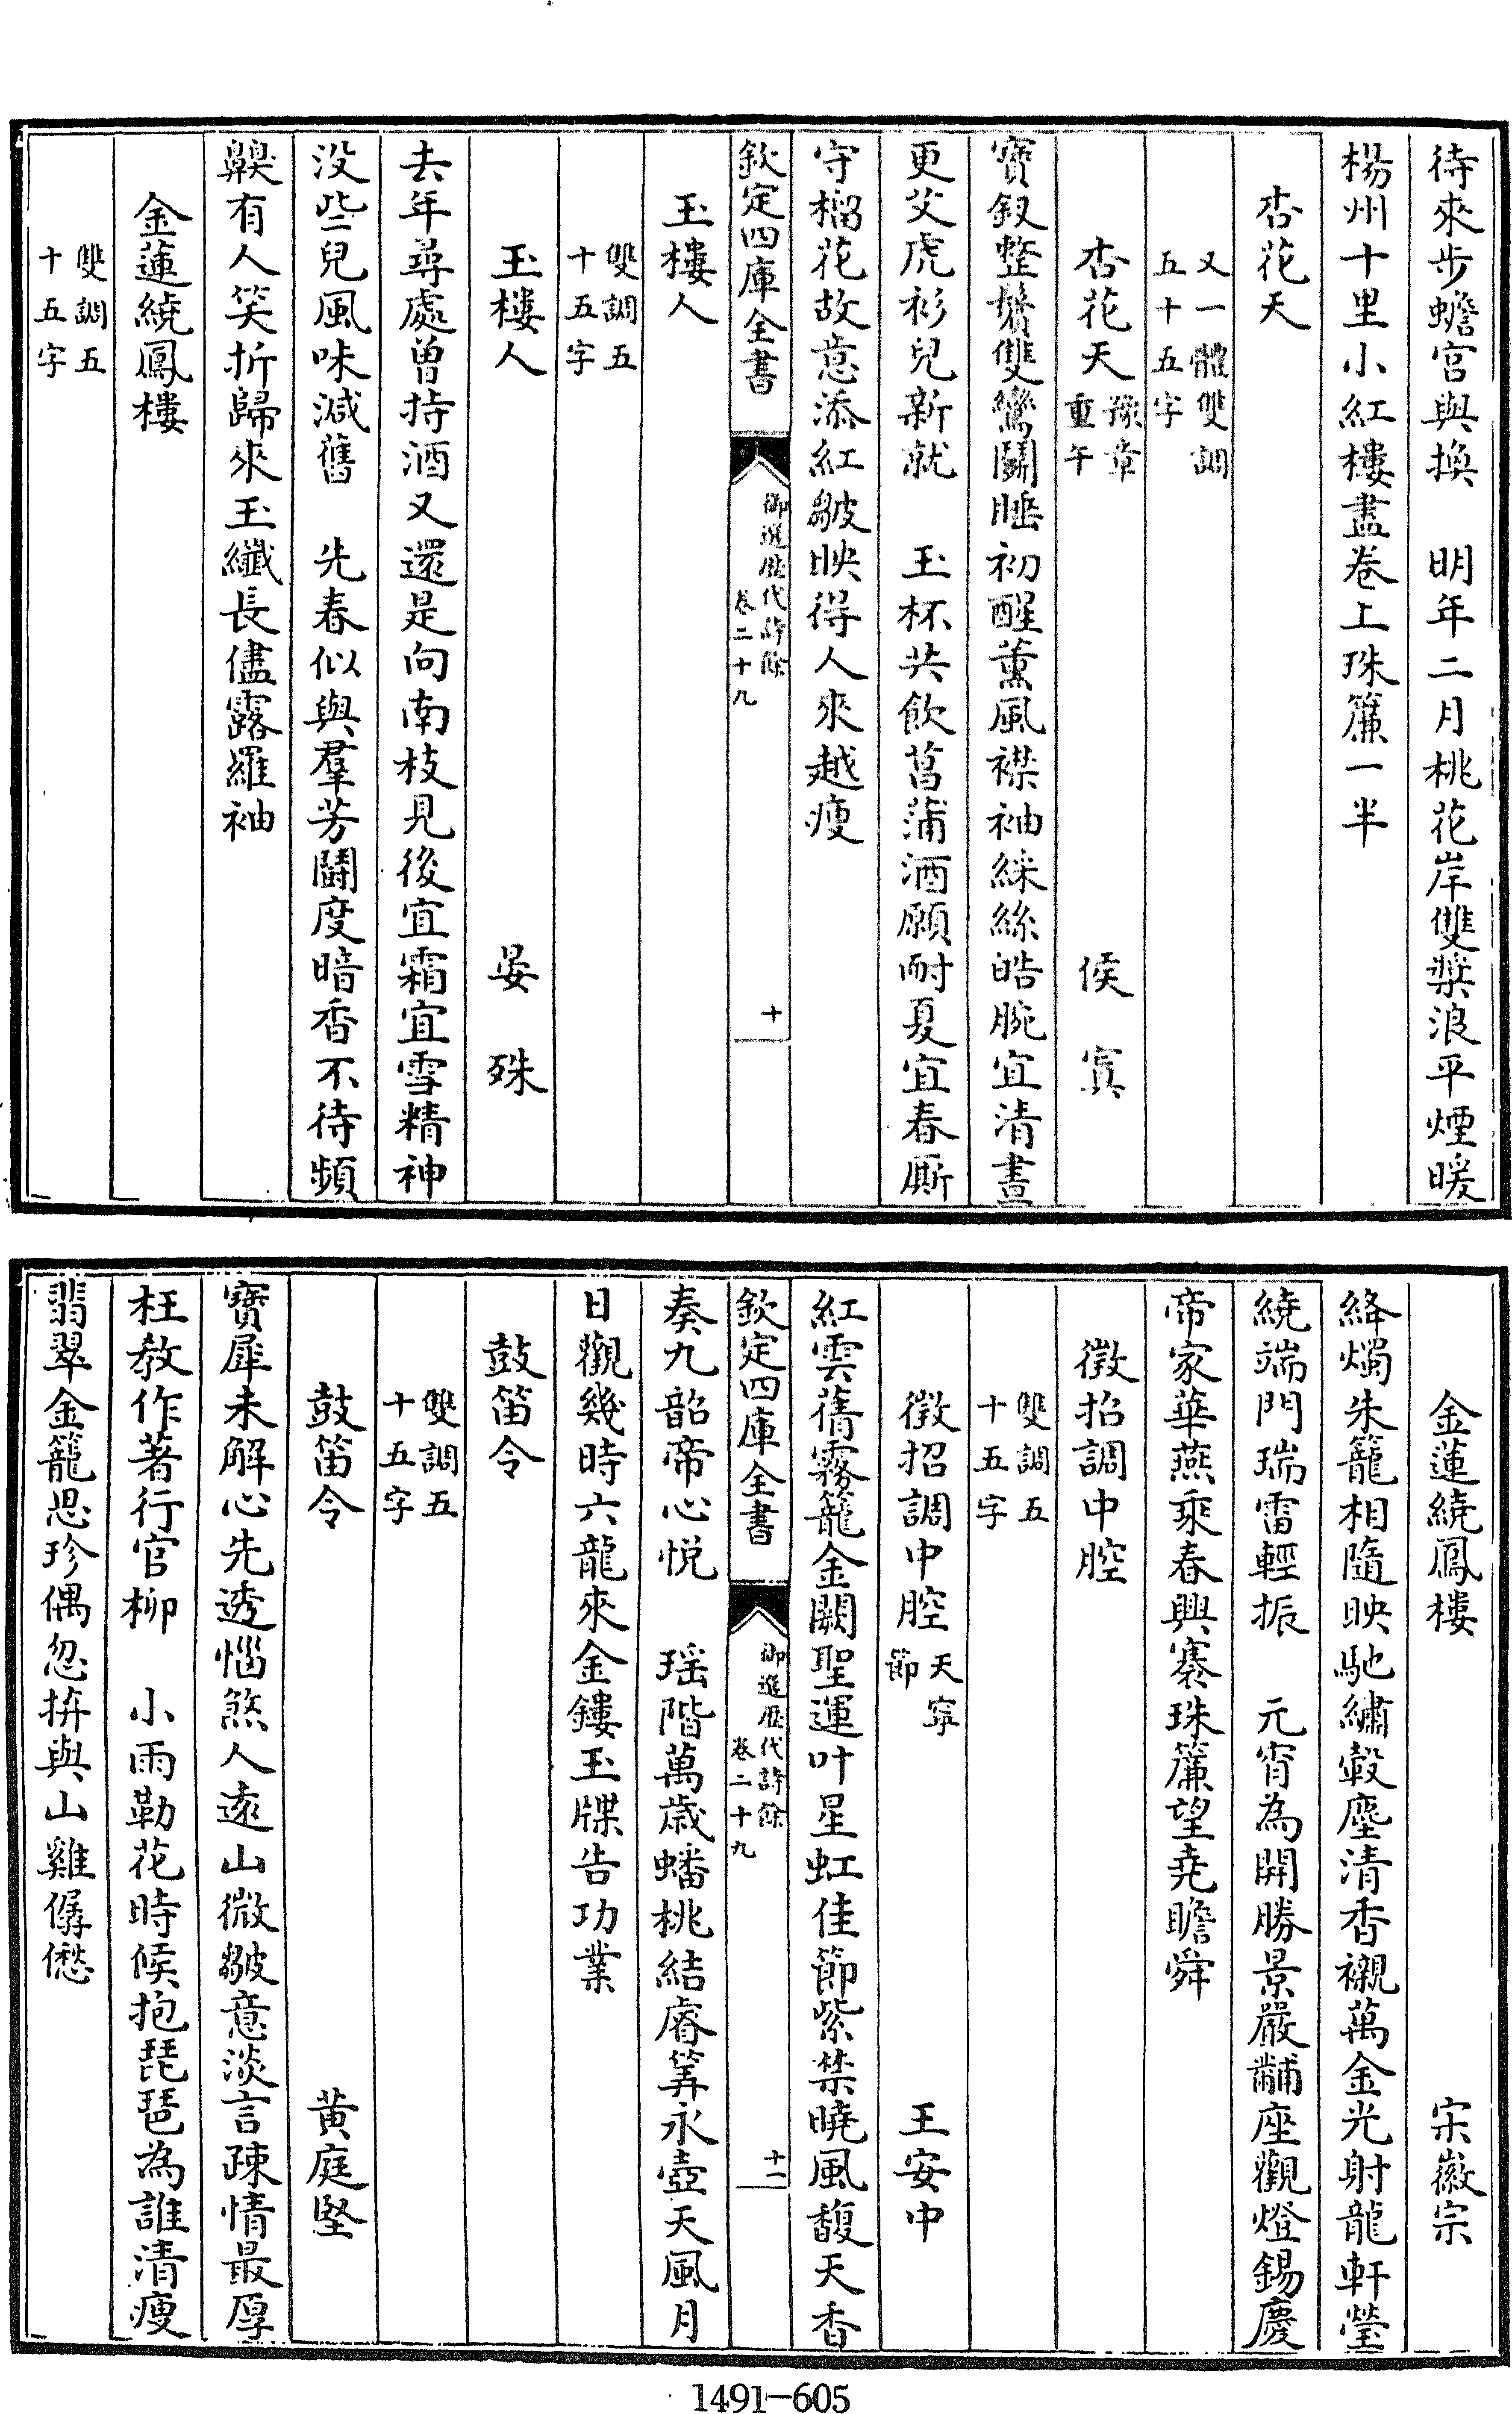 待來步蟾宮與換　明年二月桃花岸雙槳浪平煙暖
楊州十里小紅樓盡卷上珠簾一半
杏花天
又一體雙調
五十五字
杏花天豫章
重午
侯寘
寶釵整鬢雙鸞鬬睡初醒薰風襟袖綵絲皓腕宜清晝
更艾虎衫兒新就　玉杯共飲菖蒲酒願耐夏宜春厮
守榴花故意添紅皺映得人來越瘦
欽定四庫全書
御選歷代詩餘
卷二十九
十
玉樓人
雙調五
十五字
玉樓人
晏殊
去年尋處曾持酒又還是向南枝見後宜霜宜雪精神
没些兒風味減舊　先春似與羣芳鬭度暗香不待頻
齅有人笑折歸來玉纖長儘露羅袖
金蓮繞鳳樓
雙調五
十五字
金蓮繞鳳樓
宋徽宗
絳燭朱籠相隨映馳繡轂塵清香襯萬金光射龍軒瑩
繞端門瑞雷輕振　元宵為開勝景嚴黼座觀燈錫慶
帝家華燕乘春興褰珠簾望堯瞻舜
徵招調中腔
雙調五
十五字
徵招調中腔天寧
節
王安中
紅雲蒨霧籠金闕聖運叶星虹佳節紫禁曉風馥天香
欽定四庫全書
御選歷代詩餘
卷二十九
十一
奏九韶帝心悦　瑶階萬歲蟠桃結睿筭永壺天風月
日觀幾時六龍來金鏤玉牒告功業
鼓笛令
雙調五
十五字
鼓笛令
黄庭堅
寶犀未解心先透惱煞人遠山微皺意淡言疎情最厚
枉教作著行官柳　小雨勒花時候抱琵琶為誰清瘦
翡翠金籠思珍偶忽拚與山雞僝僽
1491-605